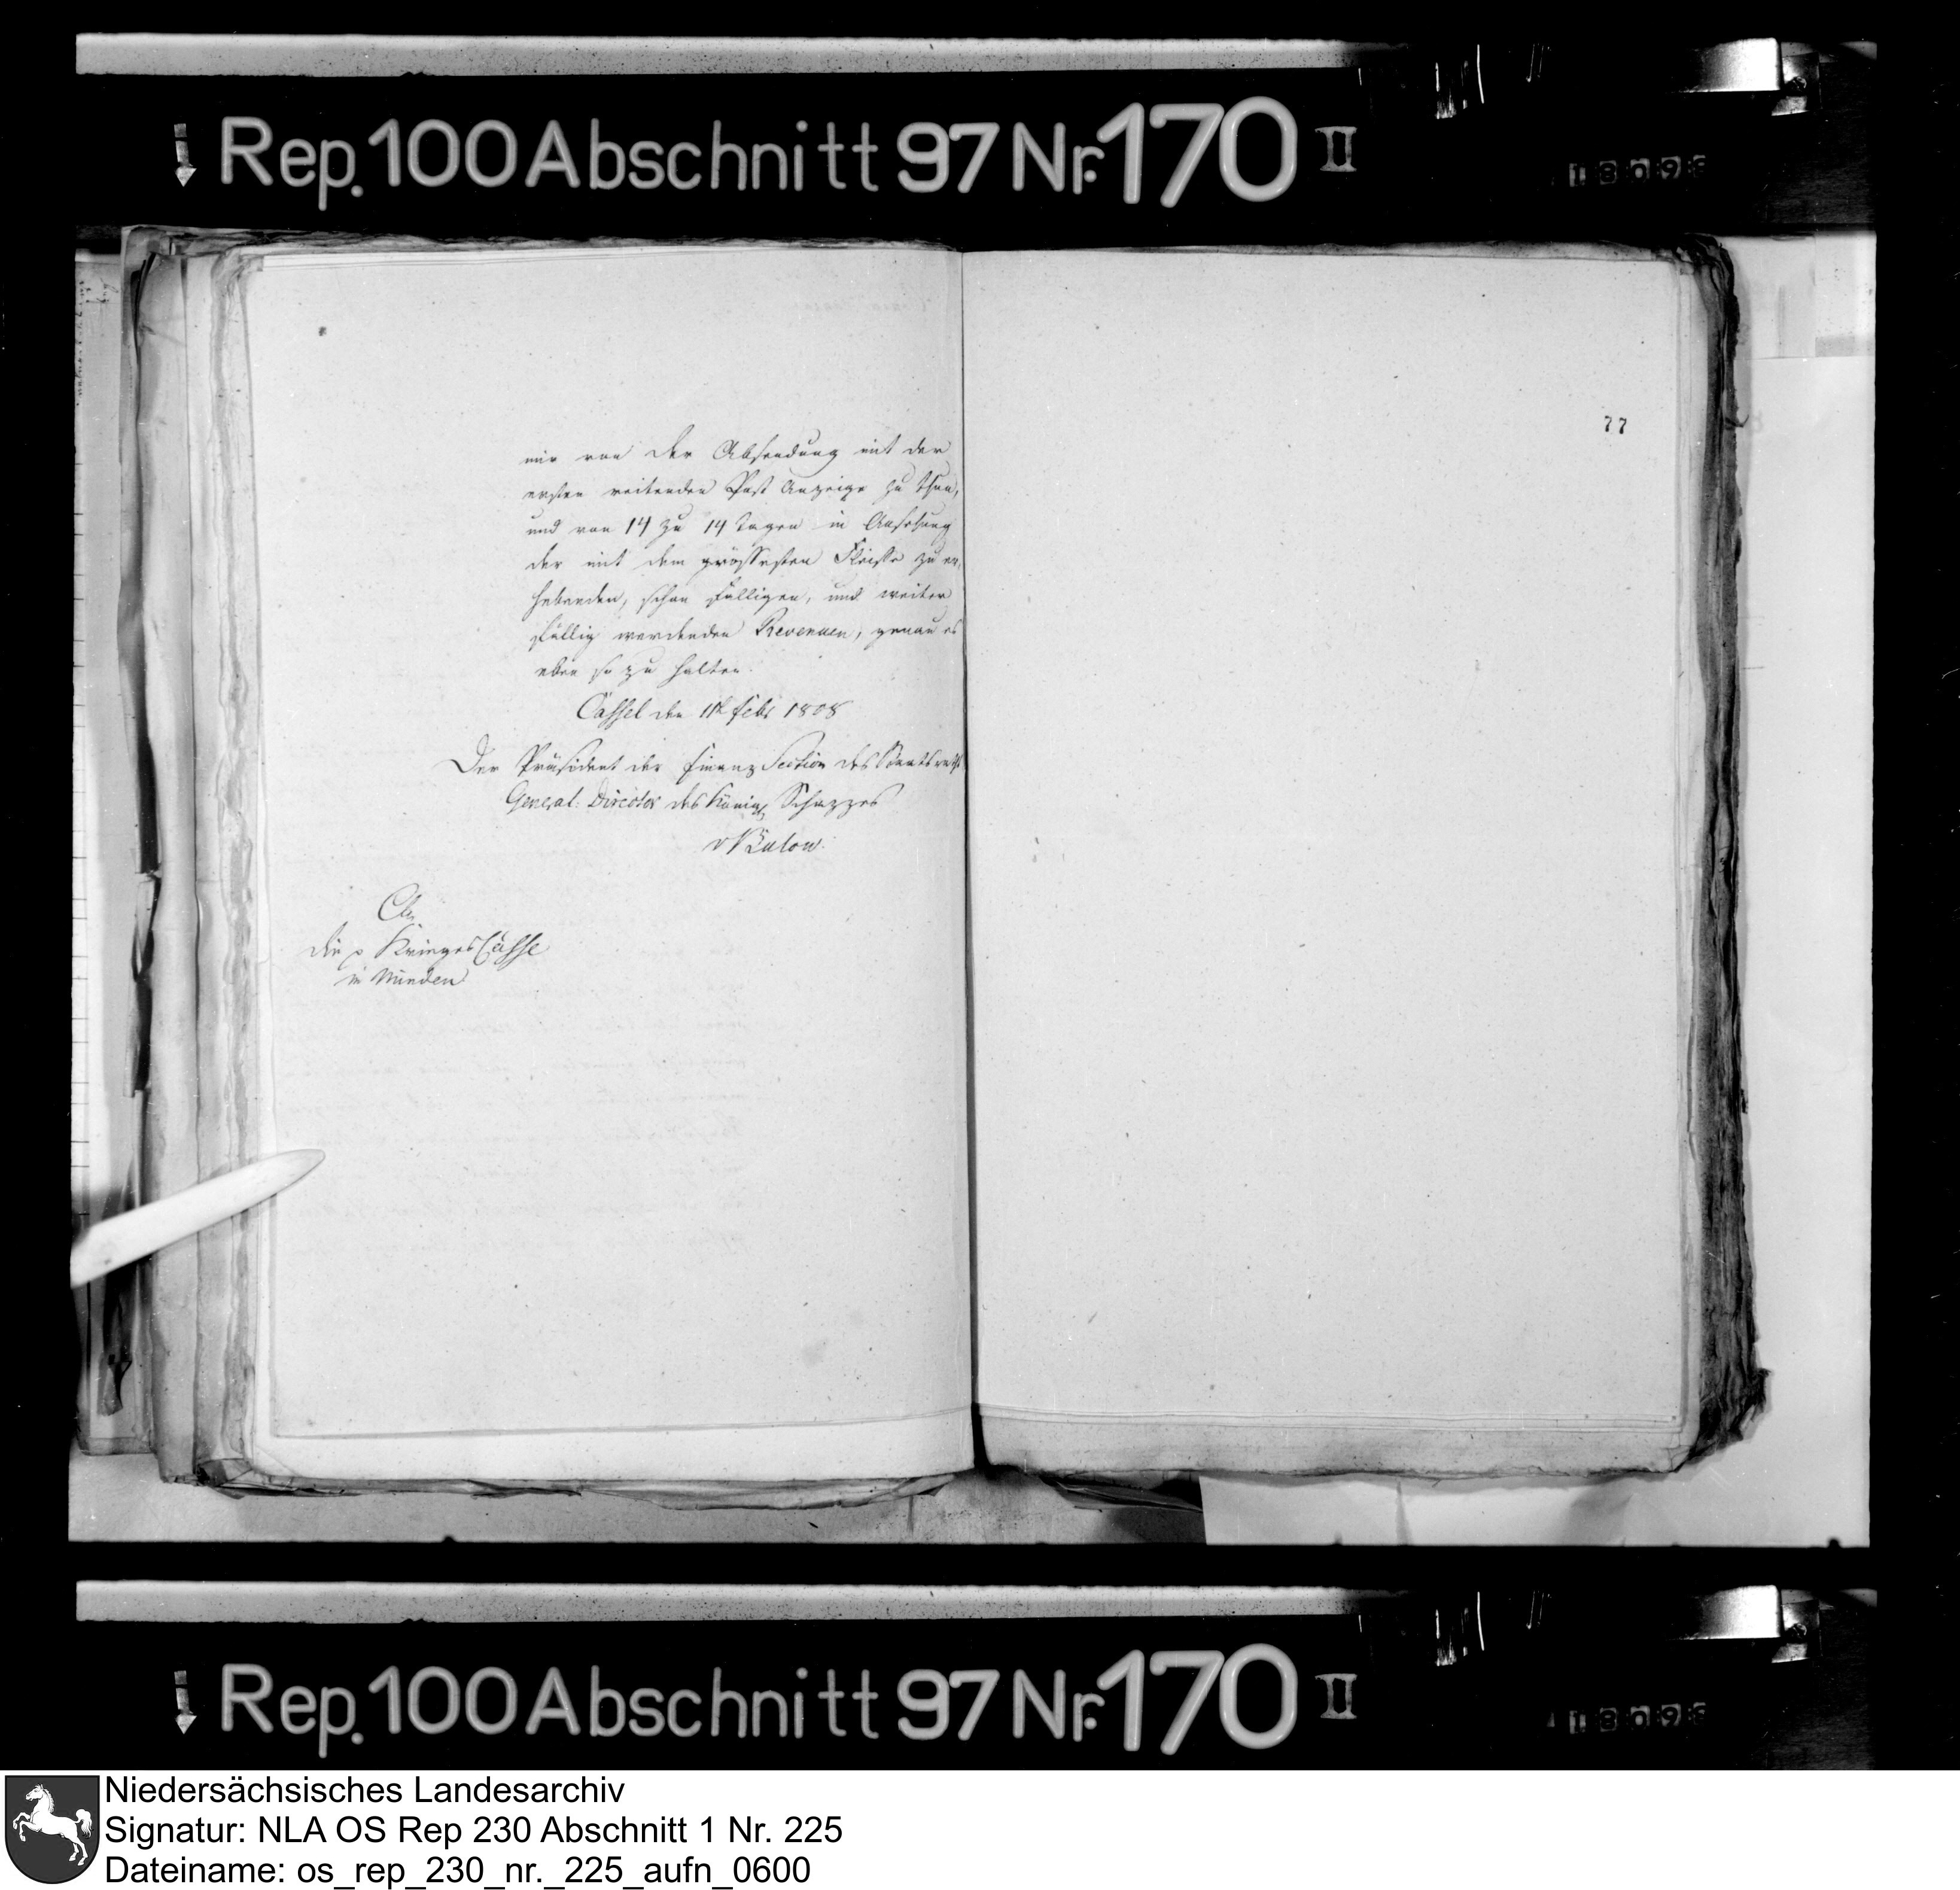 Rep. 100 Abschnitt 97 Nr. 170 II
1809
77
mir von der Absendung mit der
ersten reitenden Post Anzeige zu thun,
und von 14 zu 14 Tagen in Ansehung
der mit dem grössesten Fleisse zu er-
hebenden, schon fälligen, und weiter
fällig werdenden Revenuen, genau es
eben so zu halten.
Cassel den 11t Febr 1808
Der Präsident der Finanz Section des Staatsraths
General-Director des Königl Schazzes
v Bülow.
An
die p Krieges Casse
in Minden
Rep. 100 Abschnitt 97 Nr. 170 II
1809
Niedersächsisches Landesarchiv
Signatur: NLA OS Rep 230 Abschnitt 1 Nr. 225
Dateiname: os_rep_230_nr._225_aufn_0600